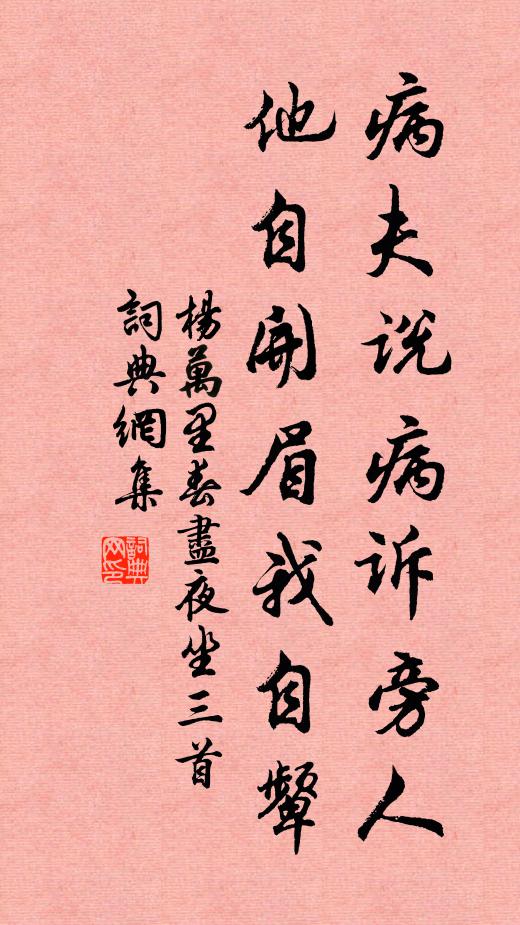 病夫说病诉旁人
他自開眉我自颦
楊萬里春盡夜坐三首
詞典網集
詞典
网印